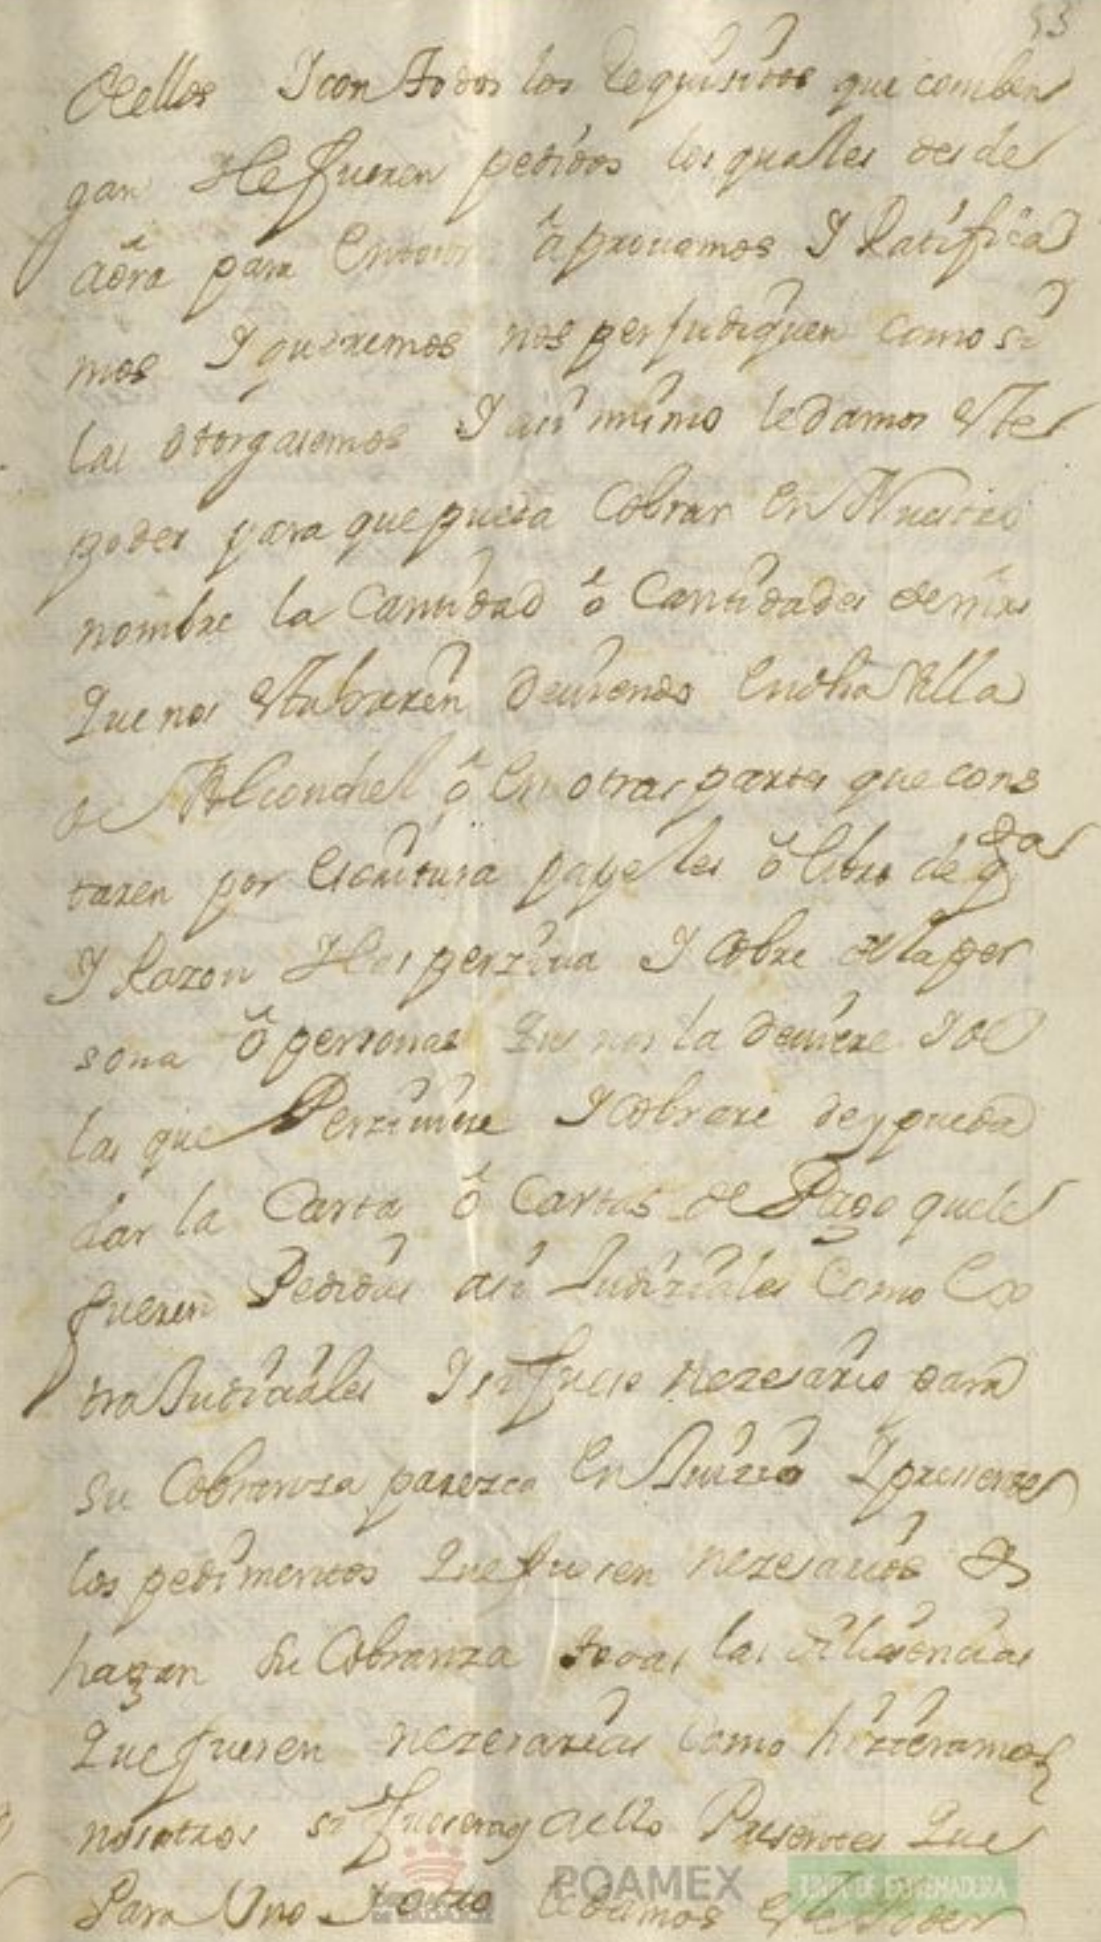 53
dellos I con todos los Requisitos que comben
gan I le fueren pedidos los quales desde
aora para Entonces aprouamos I Ratifica
mos I queremos nos perjudiquen como si
las otorgasemos I asi mismo le damos este
poder para que pueda Cobrar En Nuestro
nombre la Cantidad o Cantidades de mrs
Que nos estubieren deuiendo En dha Villa
de Alconchel o En otras partes que cons
taren por Escritura papeles o libro de qtas
I Razon I los perziua I Cobre de la per
sona o personas Que nos la deuiere I de
las que Perziuiere I cobrare de y pueda
dar la Carta o Cartas de Pago que le
fueren Pedidas asi Judiziales Como Ex
tra Judiciales I si fuere nezesario para
Su Cobranza parezca En Juizio I presente
los pedimentos Que fueren nezesarios &
hagan Su Cobranza todas las diligencias
Que fueren nezesarias como hizieramos
nosotros si fueramos a ello Presentes Que
Para Uno I otro le damos este Poder
POAMEX
JUNTA DE EXTREMADURA